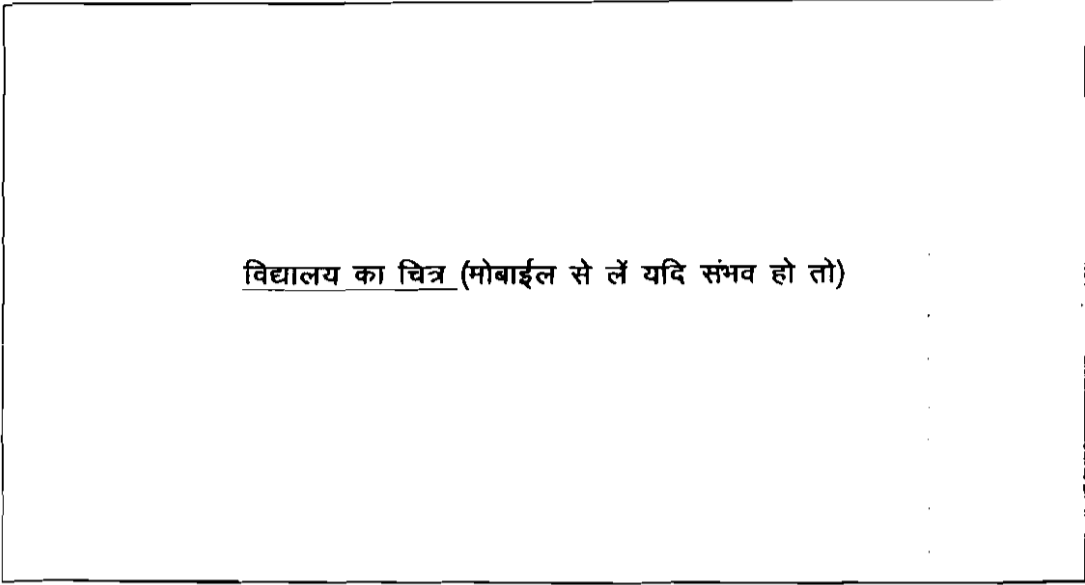 विद्यालय का चित्र (मोबाईल से लें यदि संभव हो तो)